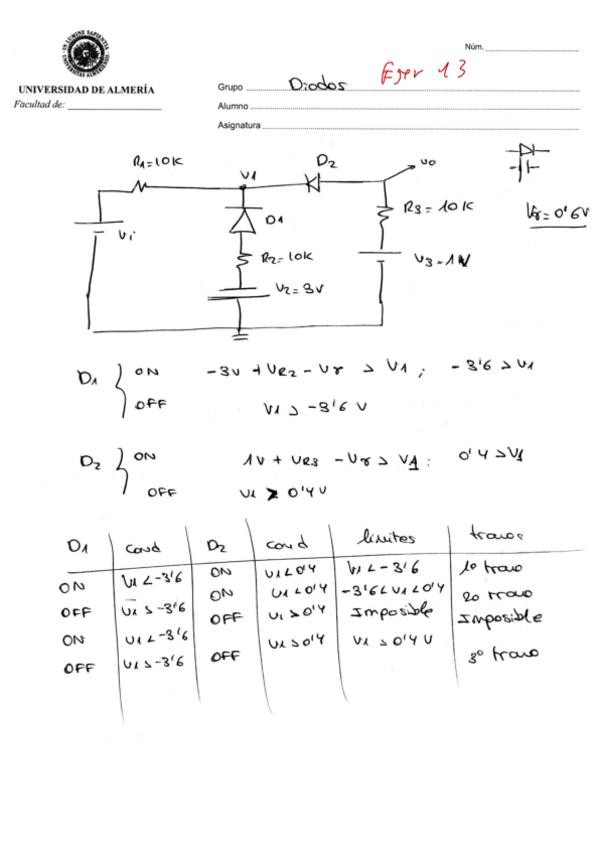 Núm.
Ejer 13
UNIVERSIDAD DE ALMERÍA
Facultad de:
Grupo Diodos
Alumno
Asignatura
R1=10K
V1
D2
vo
D1
R3=10K
Vγ=0'6V
Vi
R2=10K
V3=1V
V2=3V
D1 ON -3V + VR2 - Vγ > V1; -3'6 > V1
OFF V1 > -3'6 V
D2 ON 1V + VR3 - Vγ > V1: 0'4 > V1
OFF V1 > 0'4 V
D1 cond D2 cond limites tramos
ON V1 < -3'6 ON V1 < 0'4 V1 < -3'6 1º tramo
OFF V1 > -3'6 ON V1 < 0'4 -3'6 < V1 < 0'4 2º tramo
ON V1 < -3'6 OFF V1 > 0'4 Imposible Imposible
OFF V1 > -3'6 OFF V1 > 0'4 V1 > 0'4 V 3º tramo